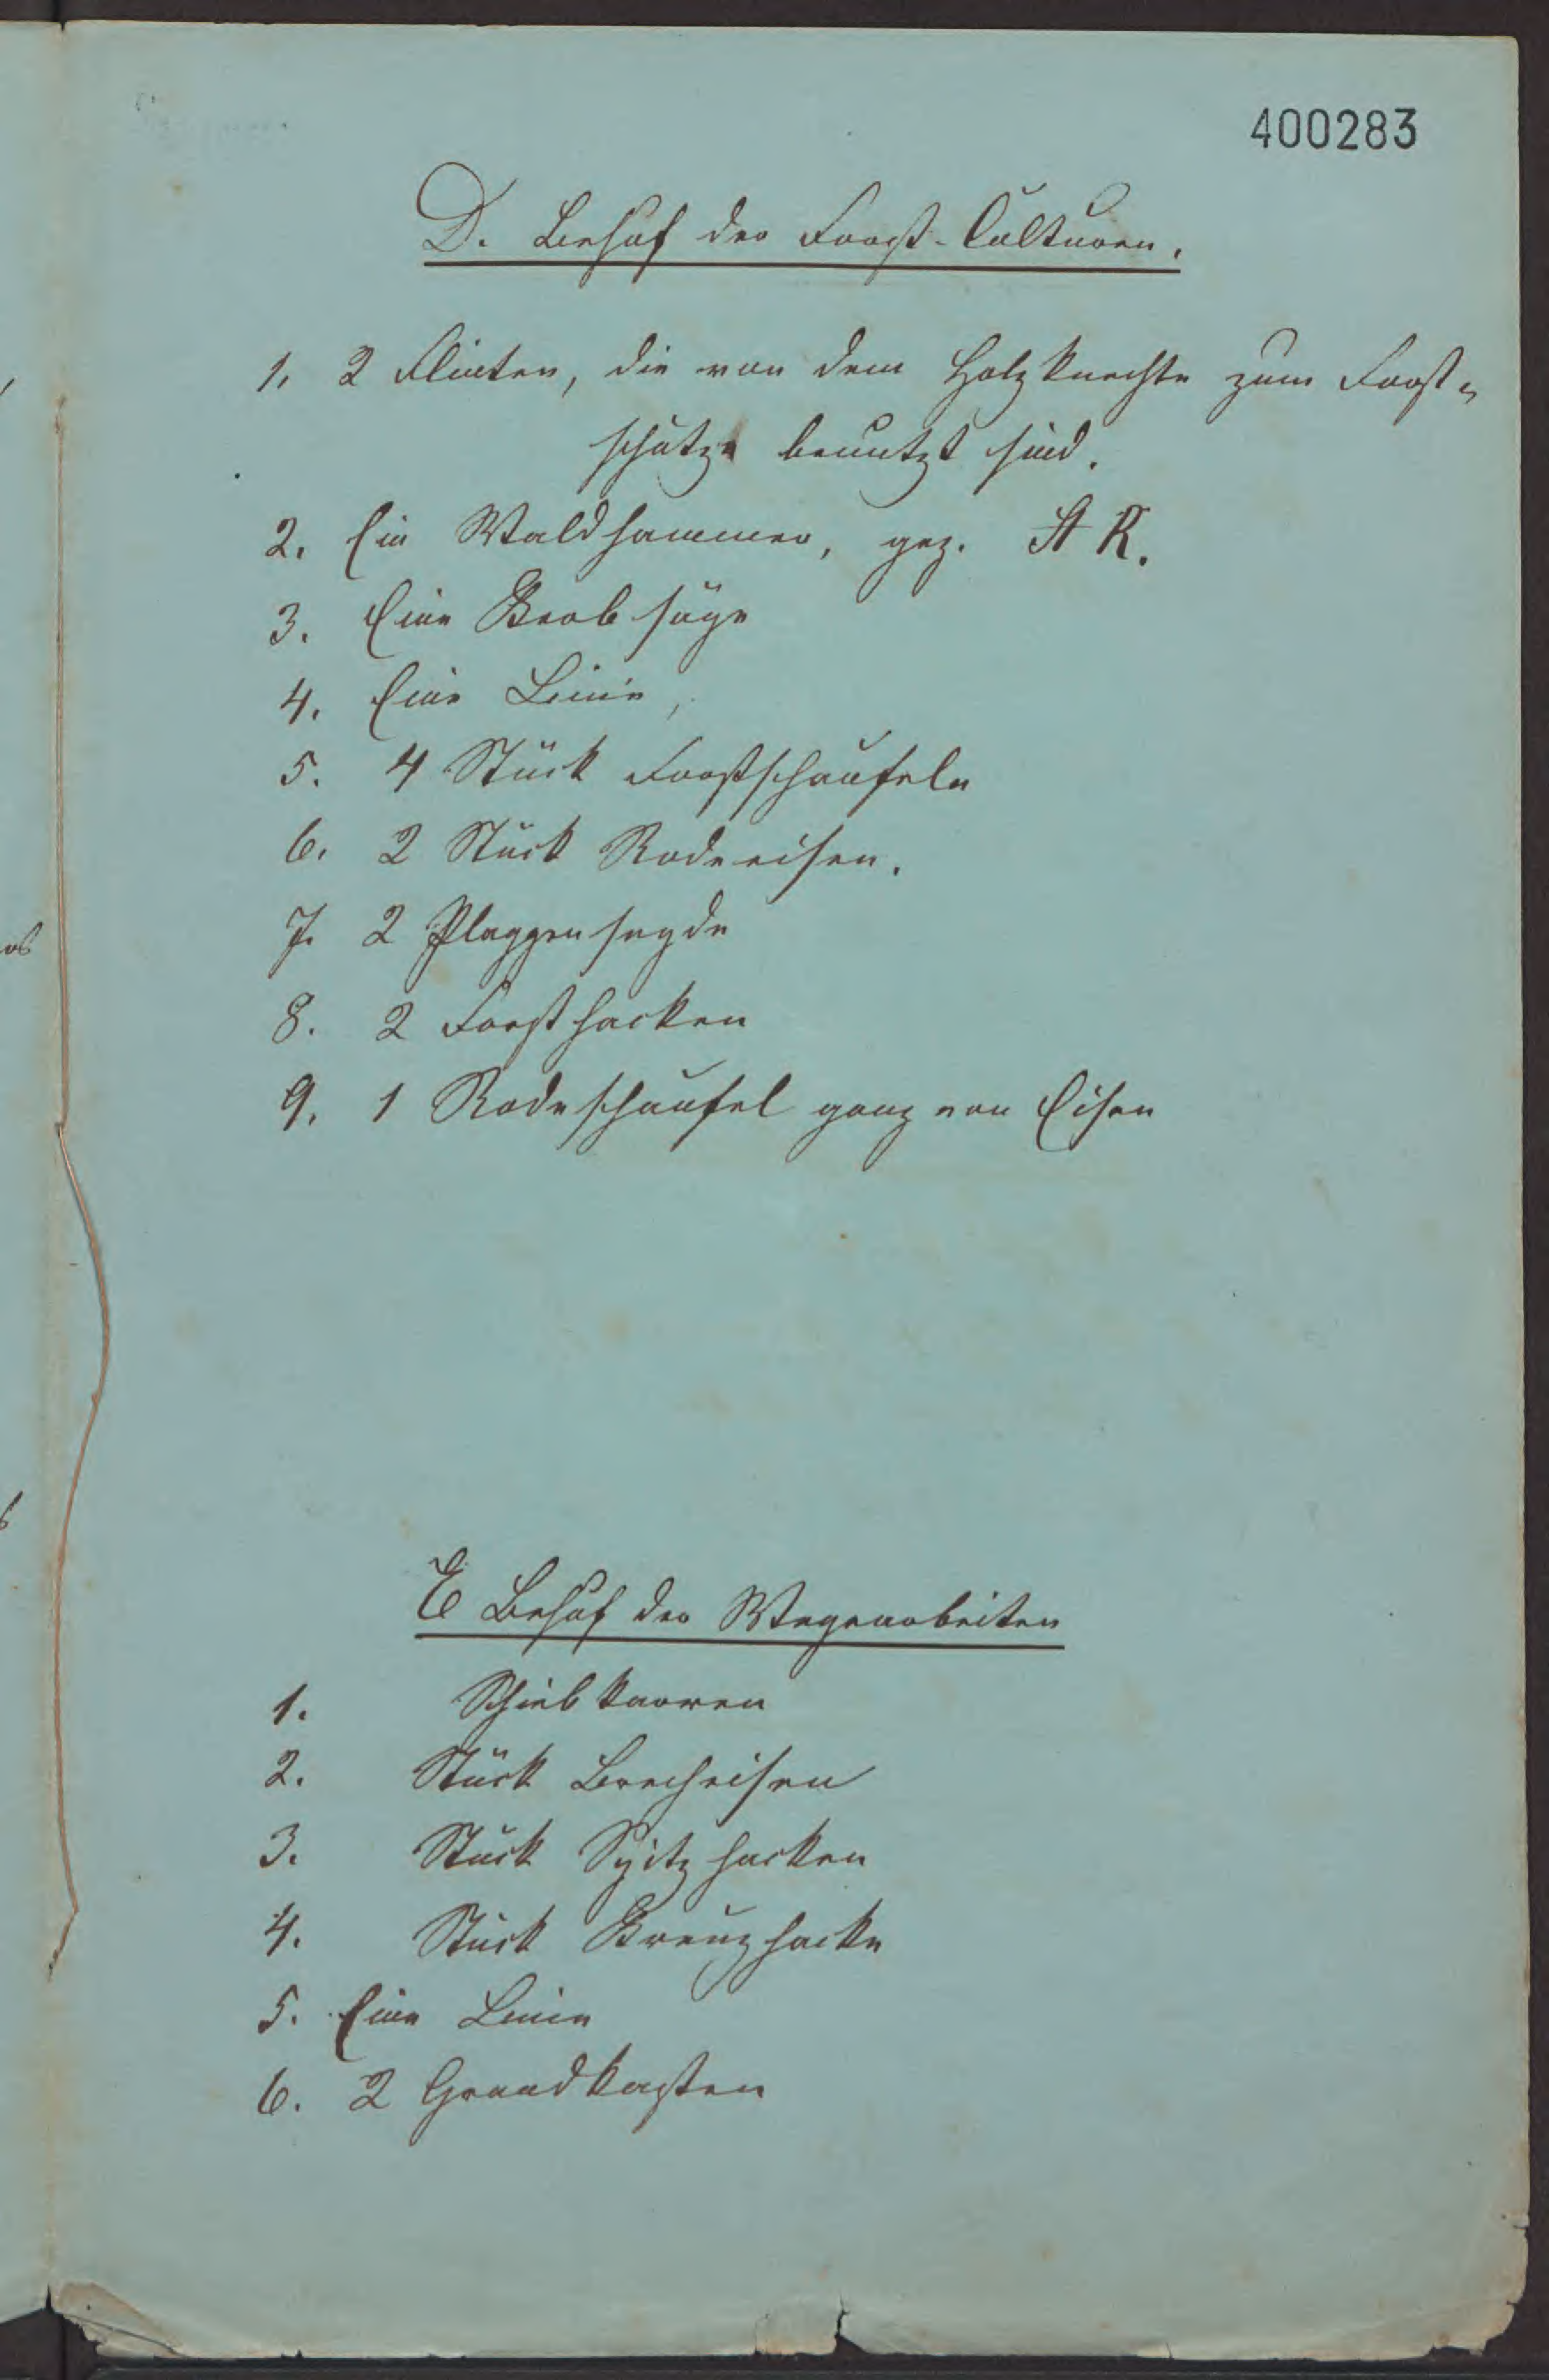 400283
D. Behuf der Forst-Culturen.
1. 2 Flinten, die von dem Holzknechte zum Forst-
schutze benutzt sind.
2. Ein Waldhammer, gez. A R.
3. Eine
4. Eine Leine,
5. 4 Stück Forstschaufeln
6. 2 Stück Rodeeisen.
7. 2 Plaggensegde
8. 2 Forsthacken
9. 1 Rodeschaufel ganz von Eisen
E Behuf der Wegearbeiten
1. Schiebkarren
2. Stück Brecheisen
3. Stück Spitzhacken
4. Stück Kreuzhacke
5. Eine Leine
6. 2 Grandkasten